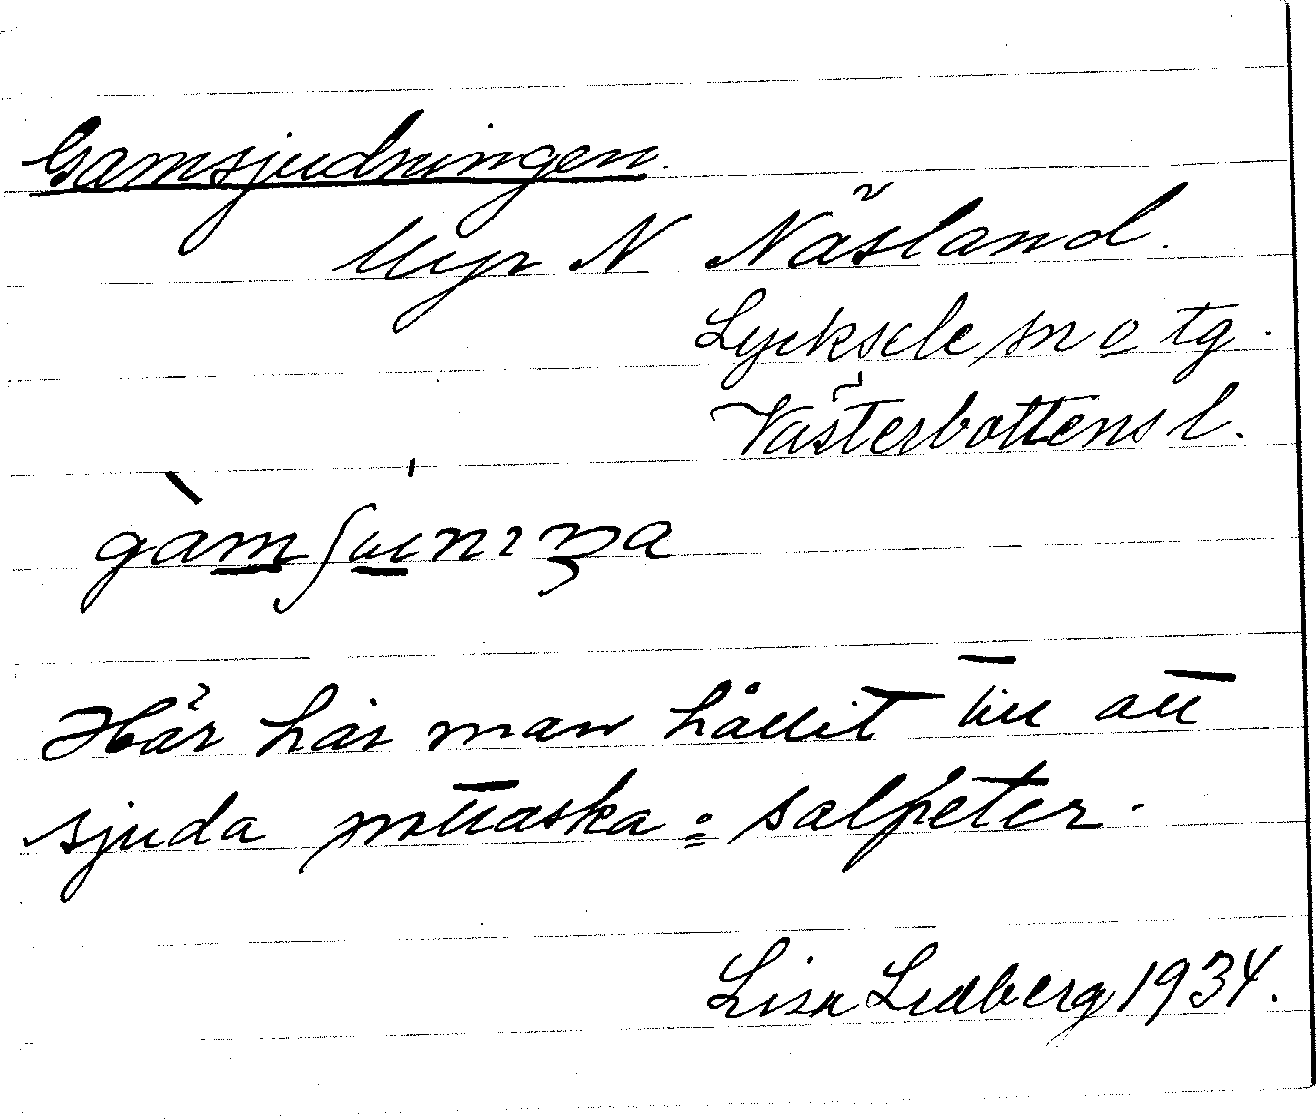 Gamsjudningen.
Myr N Näsland.
Lycksele sn o tg.
Västerbottens l.
Här har man hållit till att
sjuda pottaska = salpeter.
Lisa Lidberg 1934.